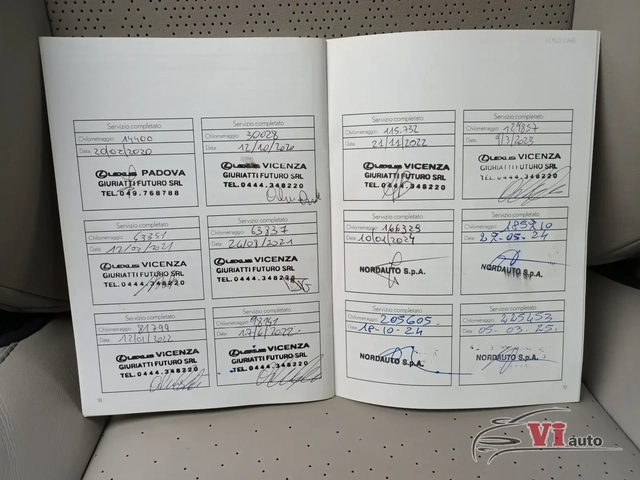 Servizio completato
Chilometraggio: 14400
Data: 20/02/2020
LEXUS PADOVA
GIURIATTI FUTURO SRL
TEL. 049.768788
Servizio completato
Chilometraggio: 30028
Data: 12/10/2020
LEXUS VICENZA
GIURIATTI FUTURO SRL
TEL. 0444.348220
Servizio completato
Chilometraggio:
Data:
LEXUS VICENZA
GIURIATTI FUTURO SRL
TEL. 0444.348220
Servizio completato
Chilometraggio: 63837
Data: 26/08/2021
LEXUS VICENZA
GIURIATTI FUTURO SRL
TEL. 0444.348220
Servizio completato
Chilometraggio: 81799
Data: 17/01/2022
LEXUS VICENZA
GIURIATTI FUTURO SRL
TEL. 0444.348220
Servizio completato
Chilometraggio: 98151
Data: 17/6/2022
LEXUS VICENZA
GIURIATTI FUTURO SRL
TEL. 0444.348220
Servizio completato
Chilometraggio: 115.732
Data: 21/11/2022
LEXUS VICENZA
GIURIATTI FUTURO SRL
TEL. 0444.348220
Servizio completato
Chilometraggio: 129857
Data: 9/3/2023
LEXUS VICENZA
GIURIATTI FUTURO SRL
TEL. 0444.348220
Servizio completato
Chilometraggio: 166329
Data: 10/01/2024
NORDAUTO S.p.A.
Servizio completato
Chilometraggio: 185210
Data: 27-05-24
NORDAUTO S.p.A.
Servizio completato
Chilometraggio: 205605
Data: 18-10-24
NORDAUTO S.p.A.
Servizio completato
Chilometraggio: 225453
Data: 05-03-25
NORDAUTO S.p.A.
Vi auto